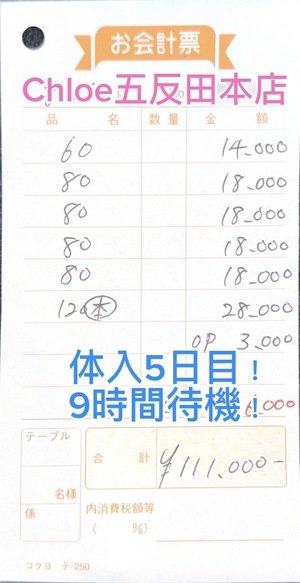 お会計票
Chloe五反田本店
品名 数量 金額
60 14-000
80 18-000
80 18-000
80 18-000
80 18-000
120㊍ 28-000
OP 3-000
体入5日目！
9時間待機！
テーブル
名様
係
合計 ¥111.000-
内消費税額等
( %)
コクヨ テ-250